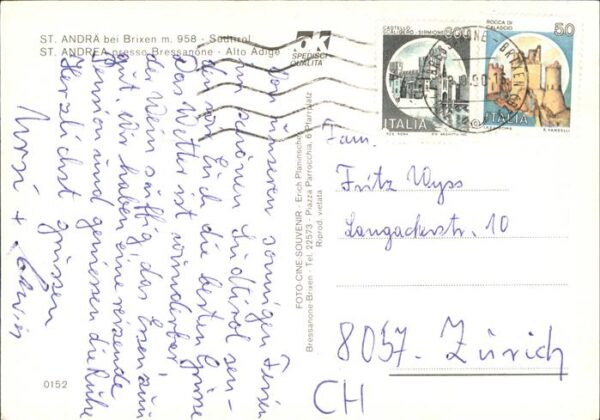 ST. ANDRÄ bei Brixen m. 958 - Südtirol
ST. ANDREA presso Bressanone - Alto Adige
SPEDISCI
QUALITÀ
CASTELLO
SCALIGERO - SIRMIONE
ITALIA
ROCCA DI
CALASCIO
50
ITALIA
Von unseren sonnigen Ferien
im schönen Südtirol sen-
den wir Euch die besten Grüsse
Das Wetter ist wunderbar
der Wein süffig das Essen
gut. Wir haben eine reizende
Pension und geniessen die Ruhe
Herzlichst grüssen
FOTO-CINE-SOUVENIR - Erich Planinschek
Bressanone-Brixen - Tel. 22573 - Piazza Parrocchia, 6 Pfarrplatz
Riprod. vietata
Fam.
Fritz Wyss
Langackerstr. 10
8057 Zürich
CH
0152